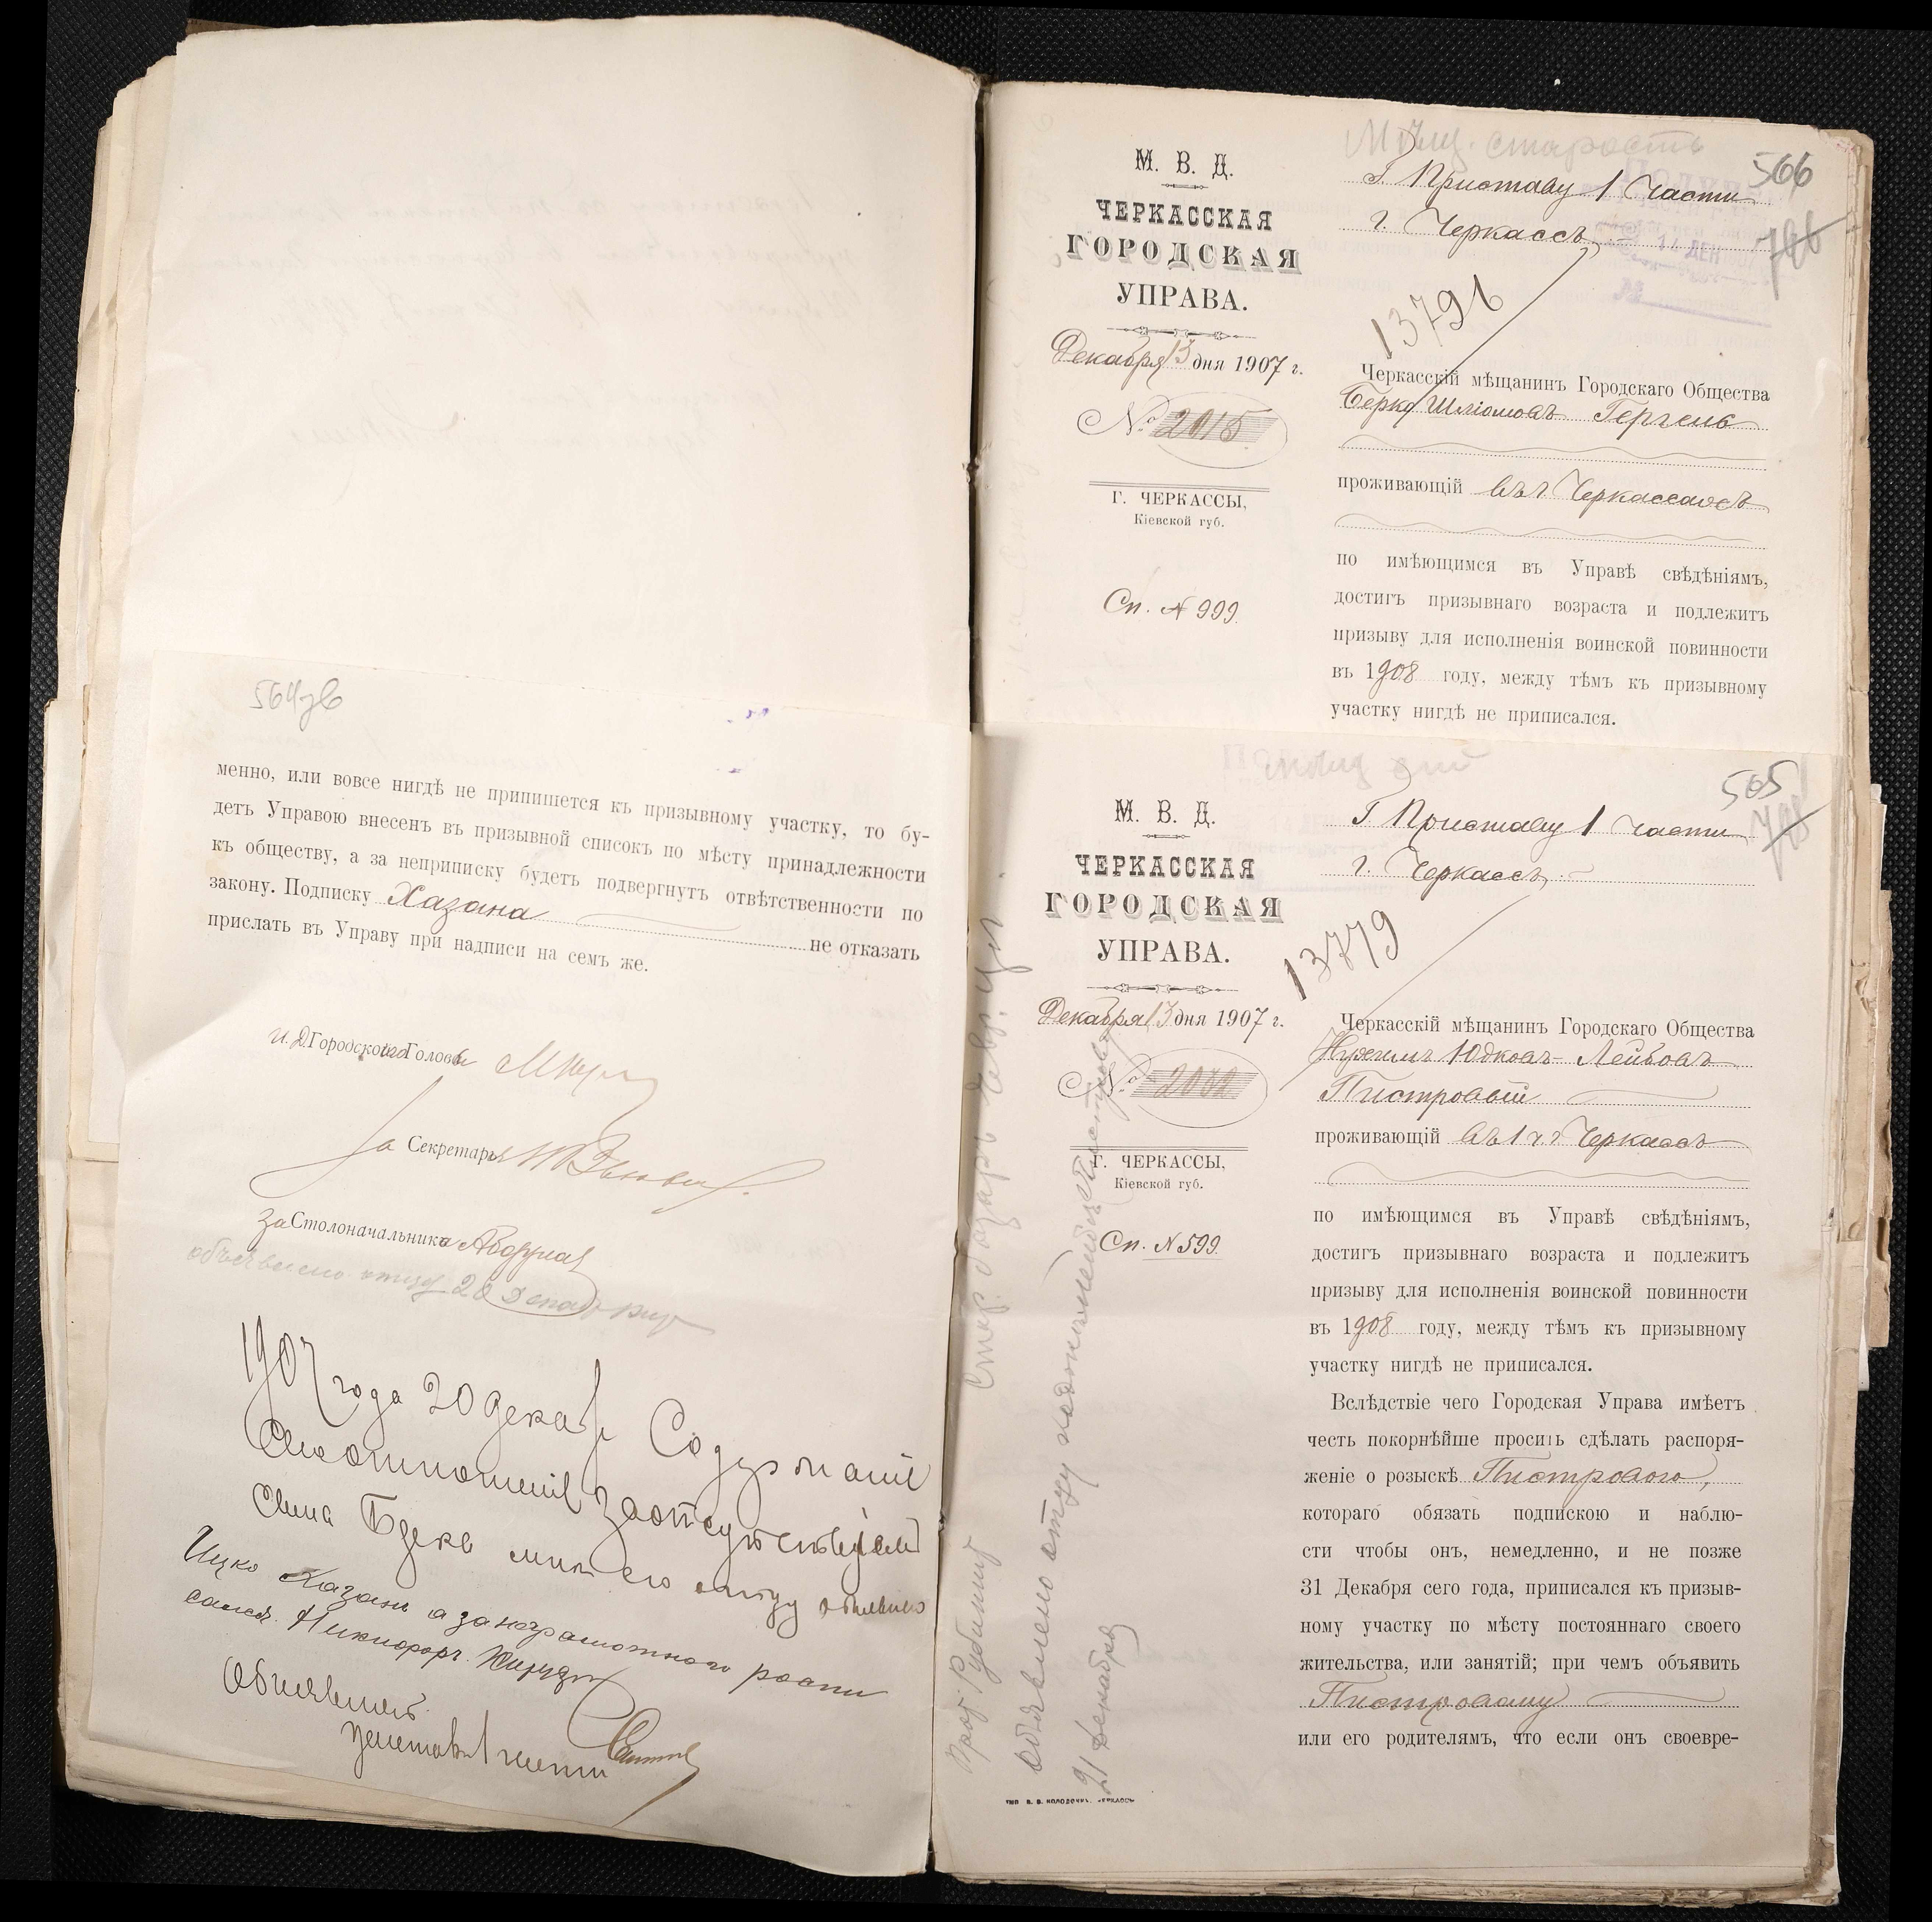 564 об
менно, или вовсе нигдѣ не припишется къ призывному участку, то бу-
детъ Управою внесенъ въ призывной списокъ по мѣсту принадлежности
къ обществу, а за неприписку будетъ подвергнутъ отвѣтственности по
закону. Подписку Хазана не отказать
прислать въ Управу при надписи на семъ же.
И. Д. Городского Головы
за Секретаря
за Столоначальника
объявлено отцу 20 Декабря
1907 года 20 декаб Содержаніе
сего отношенія
сына мнѣ его отцу объявлено
Ицко Хазанъ а за неграмотного роспи
сался Никифоръ
Объявилъ
1 части
566
Г. Приставу 1 части
г. Черкассъ
746
17 ДЕК
М. В. Д.
ЧЕРКАССКАЯ
ГОРОДСКАЯ
УПРАВА.
Декабря 13 дня 1907 г.
№ 2015
Г. ЧЕРКАССЫ,
Кіевской губ.
Сп. № 999.
13796
Черкасскій мѣщанинъ Городскаго Общества
Берко Шліомовъ Гергель
проживающій въ г. Черкассахъ
по имѣющимся въ Управѣ свѣдѣніямъ,
достигъ призывнаго возраста и подлежитъ
призыву для исполненія воинской повинности
въ 1908 году, между тѣмъ къ призывному
участку нигдѣ не приписался.
565
Г. Приставу 1 части
г. Черкассъ
М. В. Д.
ЧЕРКАССКАЯ
ГОРОДСКАЯ
УПРАВА.
Декабря 13 дня 1907 г.
№
Г. ЧЕРКАССЫ,
Кіевской губ.
Сп. № 599.
13779
Черкасскій мѣщанинъ Городскаго Общества
Юдковъ-Лейбовъ
Пистровый
проживающій въ 1 ч. г. Черкассъ
по имѣющимся въ Управѣ свѣдѣніямъ,
достигъ призывнаго возраста и подлежитъ
призыву для исполненія воинской повинности
въ 1908 году, между тѣмъ къ призывному
участку нигдѣ не приписался.
Вслѣдствіе чего Городская Управа имѣетъ
честь покорнѣйше просить сдѣлать распоря-
женіе о розыскѣ Пистрового,
котораго обязать подпискою и наблю-
сти чтобы онъ, немедленно, и не позже
31 Декабря сего года, приписался къ призыв-
ному участку по мѣсту постояннаго своего
жительства, или занятій; при чемъ объявить
Пистровому
или его родителямъ, что если онъ своевре-
объявлено отцу
21 декабря